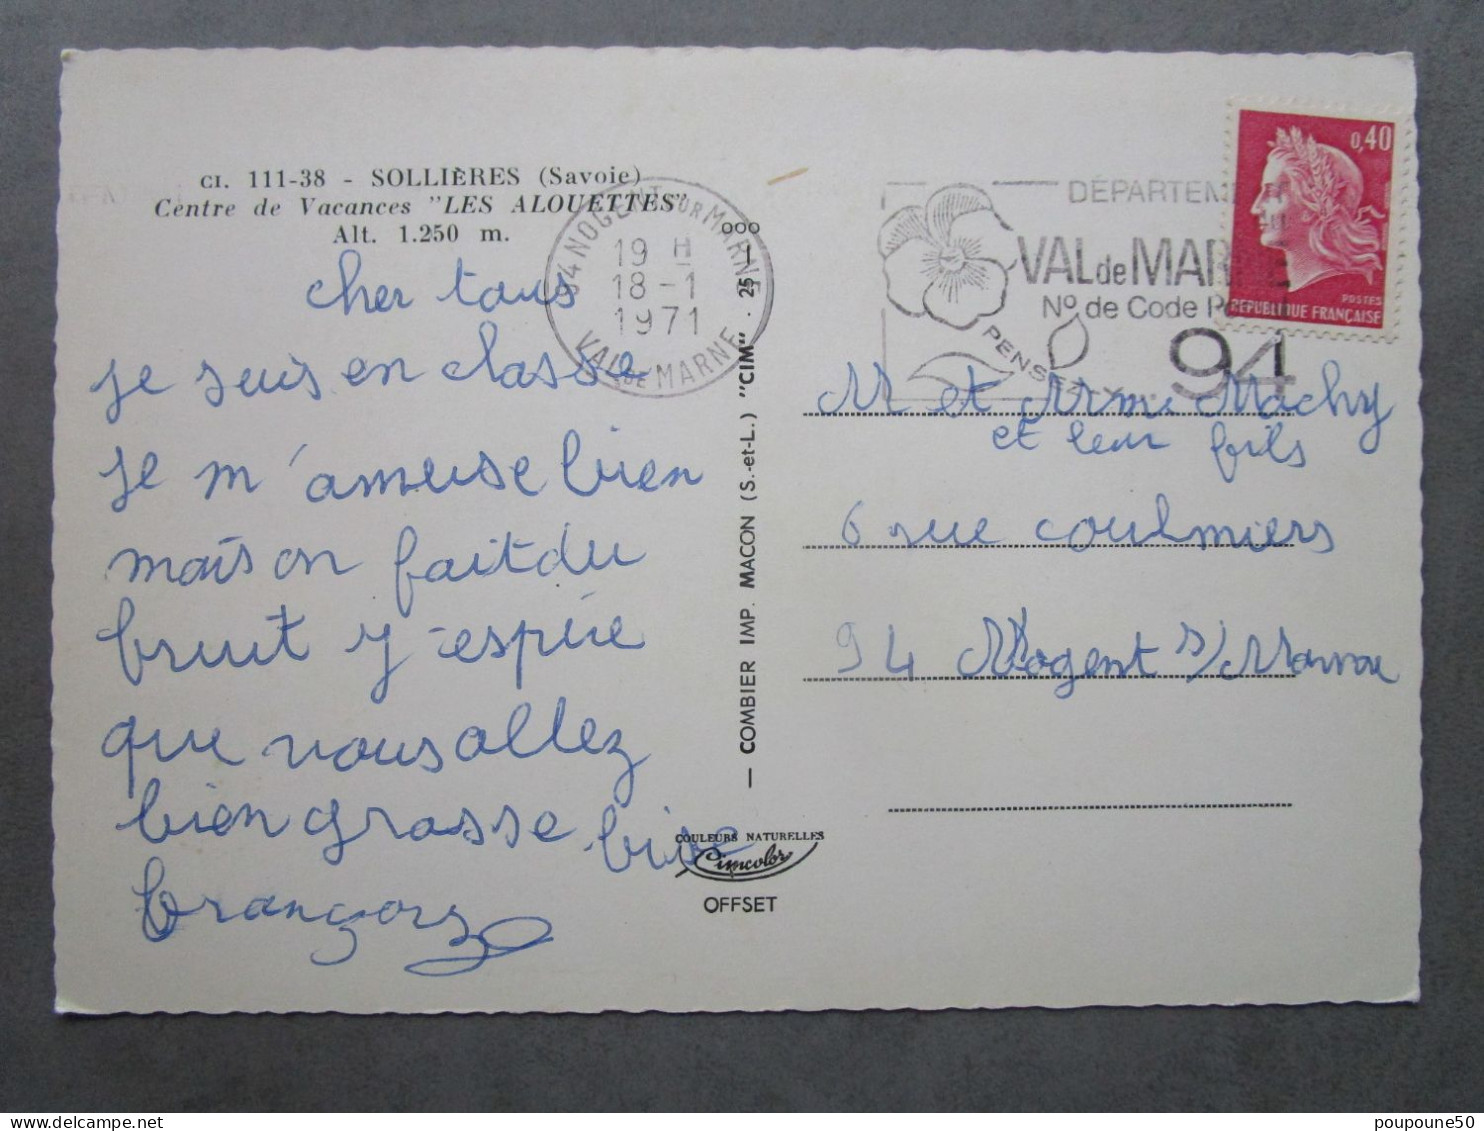 CI. 111-38 - SOLLIÈRES (Savoie)
Centre de Vacances "LES ALOUETTES"
Alt. 1.250 m.
cher tous
je suis en classe
je m'amuse bien
mais on fait du
bruit j'espére
que vous allez
bien grosse bise
françois
94 NOGENT SUR MARNE
19 H
18-1
1971
VAL DE MARNE
— COMBIER IMP. MACON (S.-et-L.) "CIM" . 25 — ooo
COULEURS NATURELLES
Cimcolor
OFFSET
DÉPARTEMENT
VAL de MARNE
N° de Code Postal
PENSEZ-Y
94
0,40
POSTES
REPUBLIQUE FRANÇAISE
M et Mme Machy
et leur fils
6 rue coulmiers
94 Nogent s/Marne
delcampe.net
poupoune50